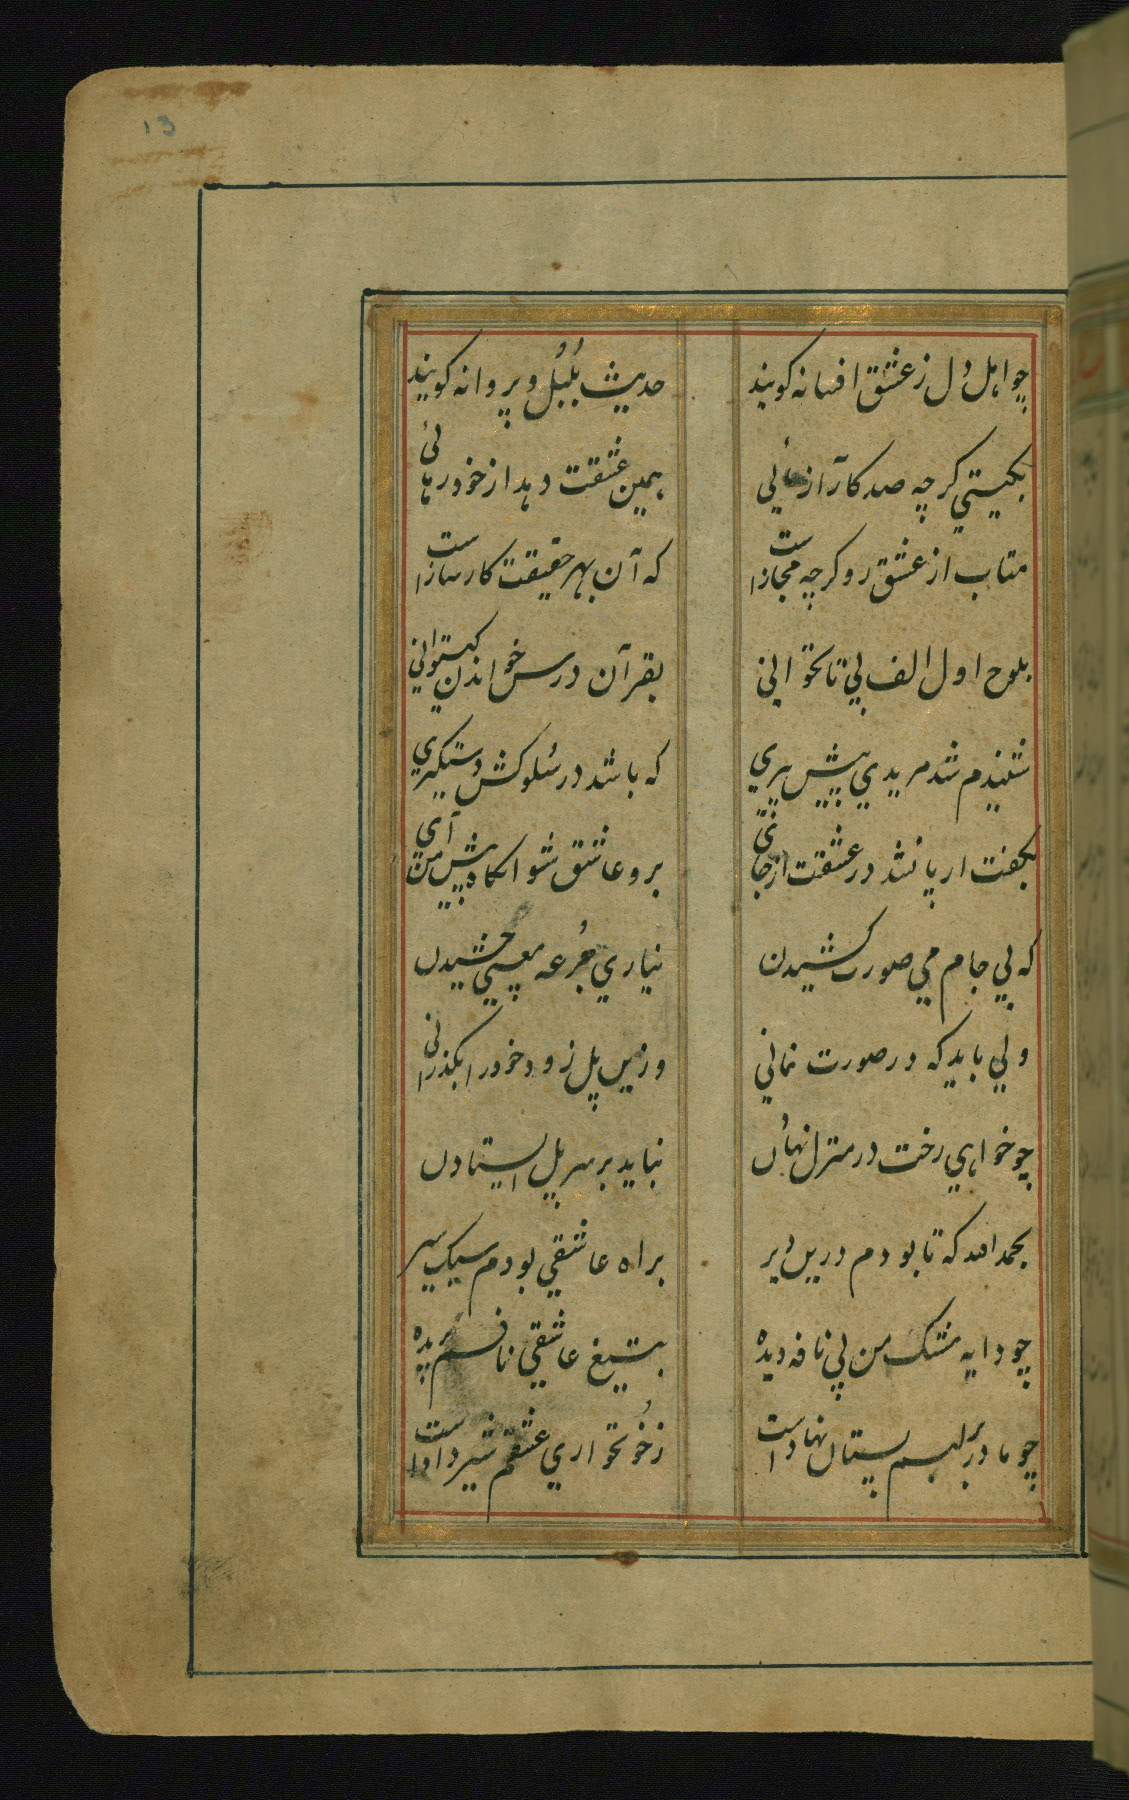 13
چو اهل دل ز عشق افسانه کویند حدیث بُلبُل و پروانه کویند
بکیتي کرچه صد کار آزمائي همین عشقت دهد از خود رهائي
متاب از عشق رو کرچه مجازاست که آن بهر حقیقت کارسازاست
بلوح اول الف بي تا نخواني بقرآن درس خواندن کیتواني
شنیدم شد مریدي پیش پیري که باشد در سُلوکش دستکیري
بکفت ار پا نشد در عشقت از جائي برو عاشق شو انکاه پیش من آي
که بي جام مي صورت کشیدن نیاري جُرعه معني چشیدن
ولي باید که در صورت نماني وزین پل زود خود را بکذراني
چو خواهي رخت در منزل نهادن نباید بر سر پل ایستادن
بحمدالله که تا بودم درین دیر براه عاشقي بودم سبک سیر
چو دایه مشک من بي نافه دیده بتیغ عاشقي نافم بریده
چو مادر بر لبم پستان نهاداست ز خونخواري عشقم شیر داداست